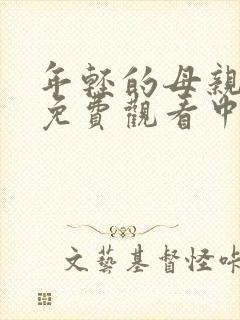 年轻的母親
免費觀看中
文藝基督怪咔